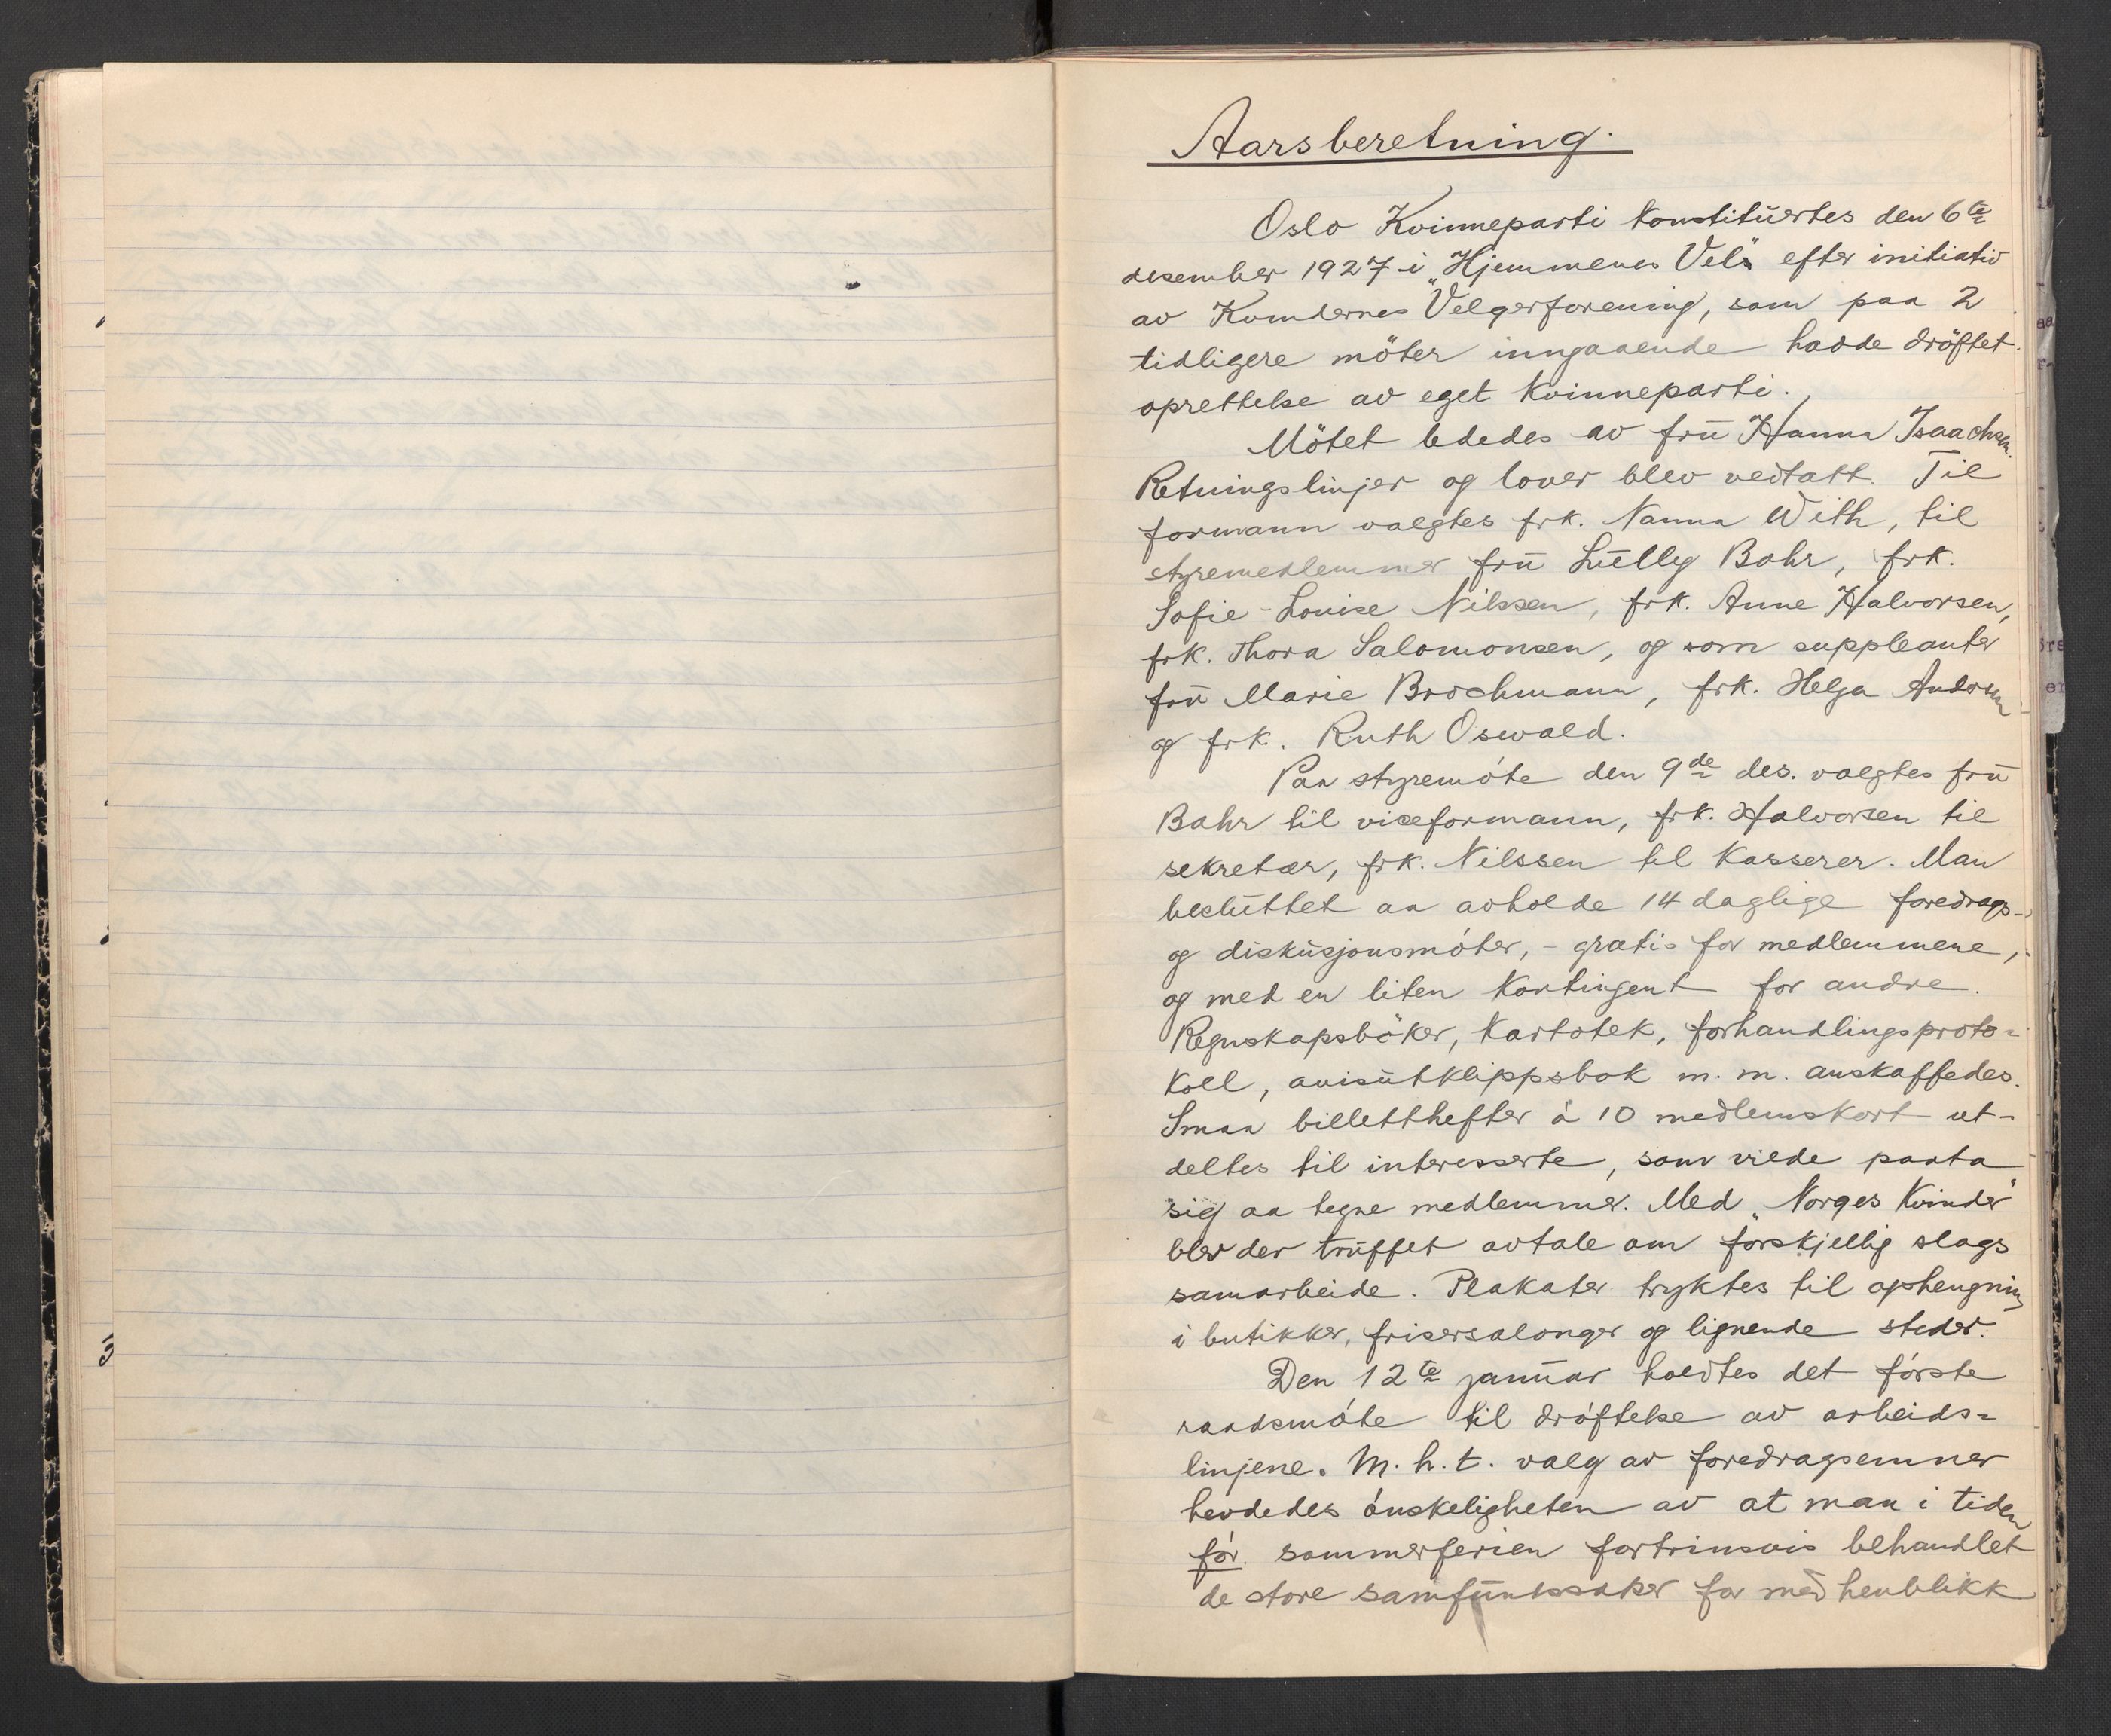 Aarsberetning.
Oslo Kvinneparti konstituertes den 6te
desember 1927 i „Hjemmenes Vel" efter initiativ
av Kvindernes Velgerforening, som paa 2
tidligere möter inngaaende hadde dröftet
oprettelse av eget kvinneparti.
Mötet lededes av fru Hanna Isaachsen.
Retningslinjer og lover blev vedtatt. Til
formann valgtes frk. Nanna With, til
styremedlemmer fru Lully Bohr, frk.
Sofie-Louise Nilssen, frk. Anne Halvorsen,
frk. Thora Salomonsen, og som suppleanter
fru Marie Brochmann, frk. Helga Andersen
og frk. Ruth Oswald.
Paa styremöte den 9de des. valgtes fru
Bohr til viceformann, frk. Halvorsen til
sekretær, frk. Nilssen til kasserer. Man
besluttet aa avholde 14 daglige foredrags-
og diskusjonsmöter, - gratis for medlemmene, -
og med en liten kontingent for andre.
Regnskapsböker, kartotek, forhandlingsproto-
koll, avisutklippsbok m. m. anskaffedes.
Smaa billetthefter à 10 medlemskort ut-
deltes til interesserte, som vilde paata
sig aa tegne medlemmer. Med „Norges Kvinder"
blev der truffet avtale om forskjellig slags
samarbeide. Plakater tryktes til ophengning
i butikker, frisersalonger og lignende steder.
Den 12te januar holdtes det förste
raadsmöte til dröftelse av arbeids-
linjene. M. h. t. valg av foredragsemner
hevdedes önskeligheten av at man i tiden
för sommerferien fortrinsvis behandlet
de store samfundssaker for med henblikk
3